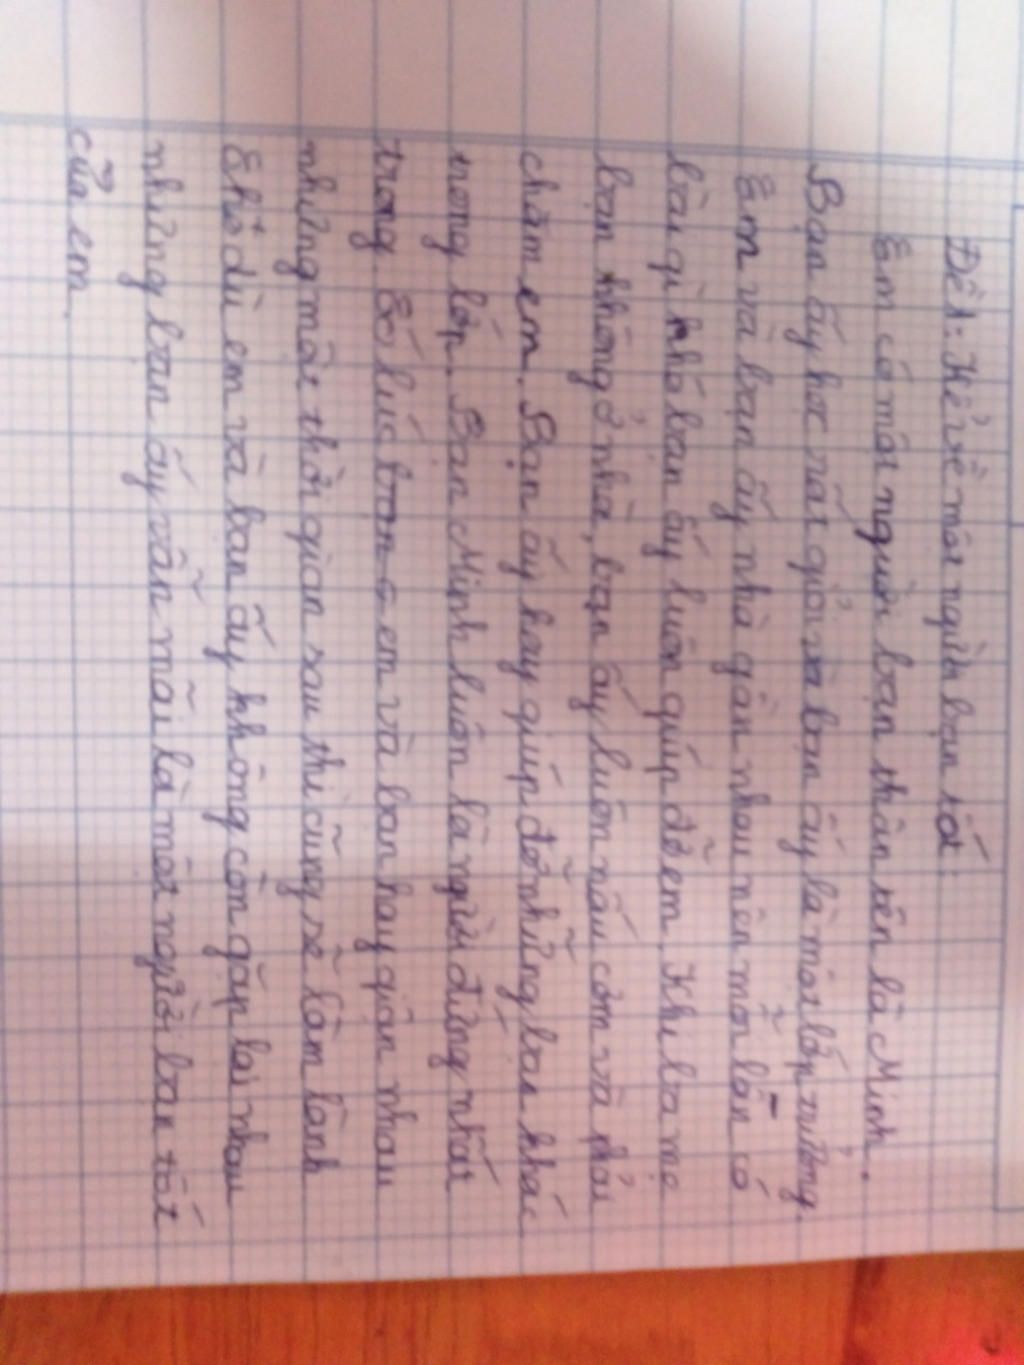 Đề 1: Kể về một người bạn tốt:
Em có một người bạn thân tên là Minh.
Bạn ấy học rất giỏi và bạn ấy là một lớp trưởng.
Em và bạn ấy nhà gần nhau nên mỗi lần có
bài gì khó bạn ấy luôn giúp đỡ em. Khi ba mẹ
bạn không ở nhà, bạn ấy luôn nấu cơm và phải
chăm em. Bạn ấy hay giúp đỡ những bạn khác
trong lớp. Bạn Minh luôn là người đứng nhất
trong. Có lúc bạn em và bạn hay giận nhau
nhưng một thời gian sau thì cũng sẽ làm lành
dù em và bạn ấy không còn gặp lại nhau
nhưng bạn ấy vẫn mãi là một người bạn tốt
của em.